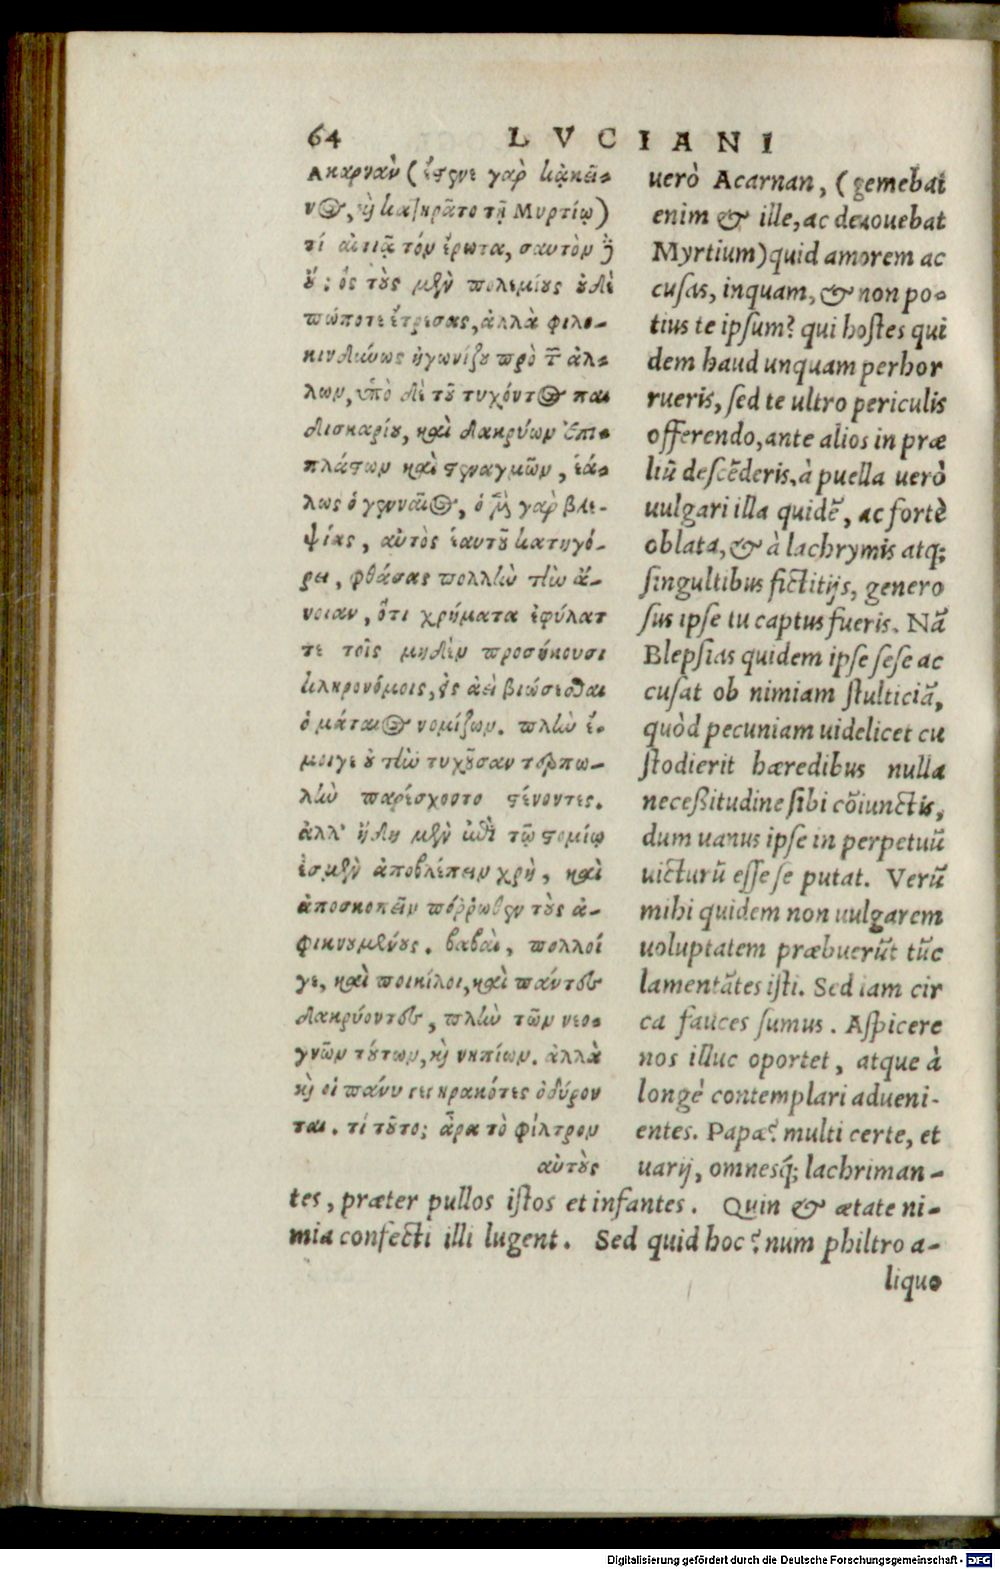 64 LVCIANI
Ακαρνὰν (ἔστενε γὰρ κᾀκεῖ-
νος, καὶ κατηρᾶτο τῇ Μυρτίῳ)
τί αἰτιᾷ τὸν ἔρωτα, σαυτὸν δὲ
οὔ; ὃς τοὺς μὲν πολεμίους οὐδὲ
πώποτε ἔτρεσας, ἀλλὰ φιλο-
κινδύνως ἠγωνίζου πρὸ τῶν ἄλ-
λων, ὑπὸ δὲ τοῦ τυχόντος παι
δισκαρίου, καὶ δακρύων ἐπι-
πλάστων καὶ στεναγμῶν, ἑά-
λως ὁ γενναῖος, ὁ μὲν γὰρ βλε-
ψίας, αὐτὸς ἑαυτοῦ κατηγό-
ρει, φθάσας πολλὴν τὴν ἄ-
νοιαν, ὅτι χρήματα ἐφύλατ
τε τοῖς μηδὲν προσήκουσι
κληρονόμοις, ἐς ἀεὶ βιώσεσθαι
ὁ μάταιος νομίζων. πλὴν ἔ-
μοιγε οὐ τὴν τυχοῦσαν τερπω-
λὴν παρέσχοντο στένοντες.
ἀλλ' ἤδη μὲν ἐπὶ τῷ στομίῳ
ἐσμὲν ἀποβλέπειν χρὴ, καὶ
ἀποσκοπεῖν πόῤῥωθεν τοὺς ἀ-
φικνουμένους. βαβαὶ, πολλοί
γε, καὶ ποικίλοι, καὶ πάντες
δακρύοντες, πλὴν τῶν νεο-
γνῶν τούτων, καὶ νηπίων. ἀλλὰ
καὶ οἱ πάνυ γεγηρακότες ὀδύρον
ται. τί τοῦτο; ἆρα τὸ φίλτρον
αὐτοὺς
uerò Acarnan, (gemebat
enim & ille, ac deuouebat
Myrtium) quid amorem ac
cusas, inquam, & non po-
tius te ipsum? qui hostes qui
dem haud unquam perhor
rueris, sed te ultro periculis
offerendo, ante alios in præ
liũ descẽderis, à puella uerò
uulgari illa quidẽ, ac fortè
oblata, & à lachrymis atq;
singultibus fictitijs, genero
sus ipse tu captus fueris. Nã
Blepsias quidem ipse sese ac
cusat ob nimiam stulticiã,
quòd pecuniam uidelicet cu
stodierit hæredibus nulla
necessitudine sibi cõiunctis,
dum uanus ipse in perpetuũ
uicturũ esse se putat. Verũ
mihi quidem non uulgarem
uoluptatem præbuerũt tũc
lamentãtes isti. Sed iam cir
ca fauces sumus. Aspicere
nos illuc oportet, atque à
longè contemplari adueni-
entes. Papæ? multi certe, et
uarij, omnesq́; lachriman-
tes, præter pullos istos et infantes. Quin & ætate ni-
mia confecti illi lugent. Sed quid hoc? num philtro a-
liquo
Digitalisierung gefördert durch die Deutsche Forschungsgemeinschaft - DFG